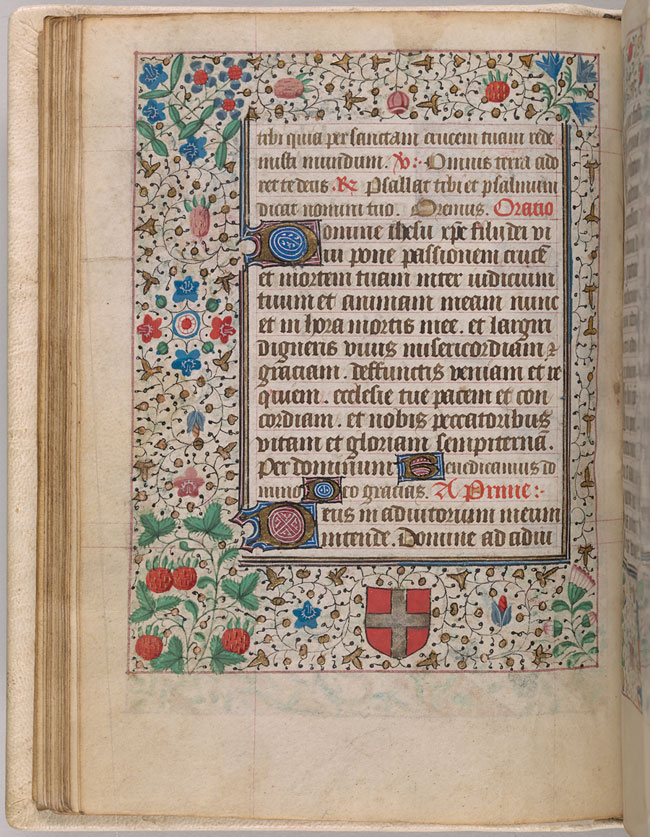 tibi quia per sanctam crucem tuam rede
misti mundum. V̷:· Omnis terra ado
ret te deus .R̷ Psallat tibi et psalmum
dicat nomini tuo. Oremus. Oratio
Domine ihesu xpe fili dei vi
ui pone passionem crucē
et mortem tuam inter iudicium
tuum et animam meam nunc
et in hora mortis mee. et largiri
digneris viuis misericordiam ⁊
graciam. deffunctis veniam et re
quiem. ecclesie tue pacem et con
cordiam. et nobis peccatoribus
vitam et gloriam sempiternā.
Per dominum Benedicamus do
mino Deo gracias. A Prime:·
Deus in adiutorium meum
intende. Domine ad adiu